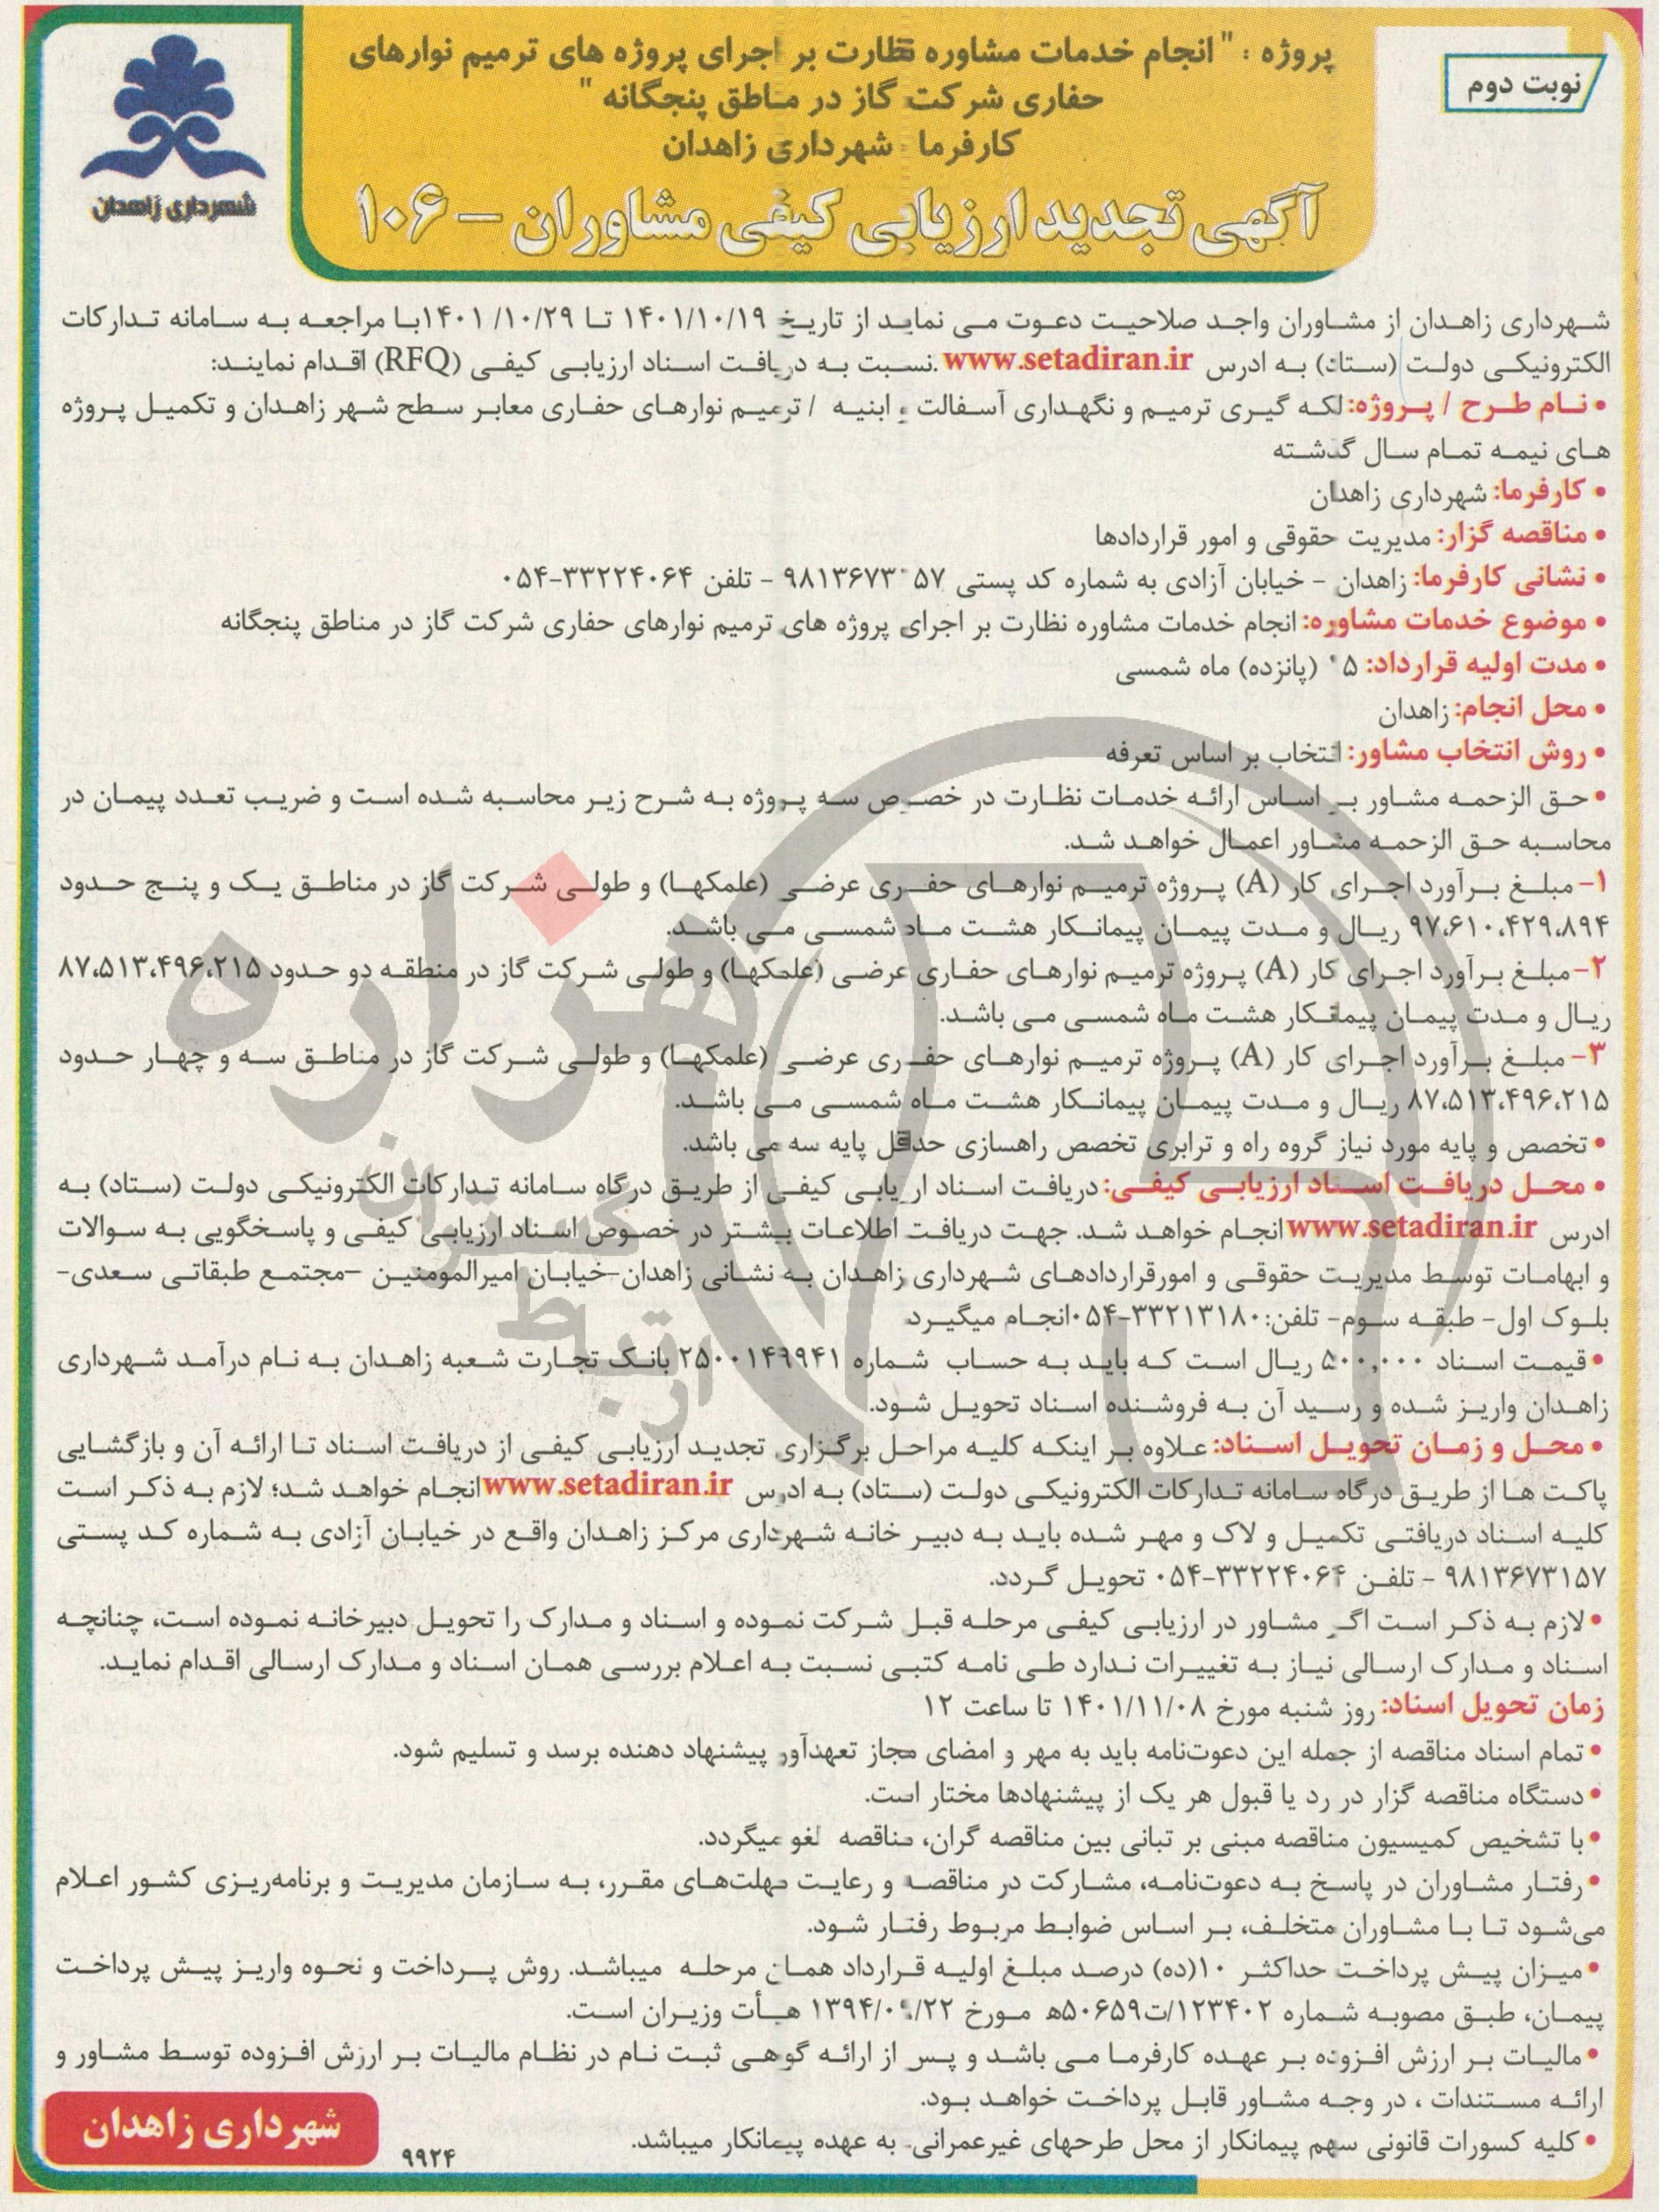 نوبت دوم
پروژه : " انجام خدمات مشاوره نظارت بر اجرای پروژه های ترمیم نوارهای
حفاری شرکت گاز در مناطق پنجگانه "
کارفرما : شهرداری زاهدان
آگهی تجدید ارزیابی کیفی مشاوران – ۱۰۶
شهرداری زاهدان
شهرداری زاهدان از مشاوران واجد صلاحیت دعوت می نماید از تاریخ ۱۴۰۱/۱۰/۱۹ تا ۱۴۰۱/۱۰/۲۹ با مراجعه به سامانه تدارکات
الکترونیکی دولت (ستاد) به ادرس www.setadiran.ir نسبت به دریافت اسناد ارزیابی کیفی (RFQ) اقدام نمایند:
• نام طرح / پروژه: لکه گیری ترمیم و نگهداری آسفالت و ابنیه / ترمیم نوارهای حفاری معابر سطح شهر زاهدان و تکمیل پروژه
های نیمه تمام سال گذشته
• کارفرما: شهرداری زاهدان
• مناقصه گزار: مدیریت حقوقی و امور قراردادها
• نشانی کارفرما: زاهدان - خیابان آزادی به شماره کد پستی ۹۸۱۳۶۷۳۱۵۷ - تلفن ۳۳۲۲۴۰۶۴-۰۵۴
• موضوع خدمات مشاوره: انجام خدمات مشاوره نظارت بر اجرای پروژه های ترمیم نوارهای حفاری شرکت گاز در مناطق پنجگانه
• مدت اولیه قرارداد: ۱۵ (پانزده) ماه شمسی
• محل انجام: زاهدان
• روش انتخاب مشاور: انتخاب بر اساس تعرفه
• حق الزحمه مشاور بر اساس ارائه خدمات نظارت در خصوص سه پروژه به شرح زیر محاسبه شده است و ضریب تعدد پیمان در
محاسبه حق الزحمه مشاور اعمال خواهد شد.
۱- مبلغ برآورد اجرای کار (A) پروژه ترمیم نوارهای حفاری عرضی (علمکها) و طولی شرکت گاز در مناطق یک و پنج حدود
۹۷،۶۱۰،۴۲۹،۸۹۴ ریال و مدت پیمان پیمانکار هشت ماه شمسی می باشد.
۲- مبلغ برآورد اجرای کار (A) پروژه ترمیم نوارهای حفاری عرضی (علمکها) و طولی شرکت گاز در منطقه دو حدود ۸۷،۵۱۳،۴۹۶،۲۱۵
ریال و مدت پیمان پیمانکار هشت ماه شمسی می باشد.
۳- مبلغ برآورد اجرای کار (A) پروژه ترمیم نوارهای حفاری عرضی (علمکها) و طولی شرکت گاز در مناطق سه و چهار حدود
۸۷،۵۱۳،۴۹۶،۲۱۵ ریال و مدت پیمان پیمانکار هشت ماه شمسی می باشد.
• تخصص و پایه مورد نیاز گروه راه و ترابری تخصص راهسازی حداقل پایه سه می باشد.
• محل دریافت اسناد ارزیابی کیفی: دریافت اسناد ارزیابی کیفی از طریق درگاه سامانه تدارکات الکترونیکی دولت (ستاد) به
ادرس www.setadiran.ir انجام خواهد شد. جهت دریافت اطلاعات بیشتر در خصوص اسناد ارزیابی کیفی و پاسخگویی به سوالات
و ابهامات توسط مدیریت حقوقی و امورقراردادهای شهرداری زاهدان به نشانی زاهدان-خیابان امیرالمومنین -مجتمع طبقاتی سعدی-
بلوک اول- طبقه سوم- تلفن: ۳۳۲۱۳۱۸۰-۰۵۴ انجام میگیرد
• قیمت اسناد ۵۰۰,۰۰۰ ریال است که باید به حساب شماره ۲۵۰۰۱۴۹۹۴۱ بانک تجارت شعبه زاهدان به نام درآمد شهرداری
زاهدان واریز شده و رسید آن به فروشنده اسناد تحویل شود.
• محل و زمان تحویل اسناد: علاوه بر اینکه کلیه مراحل برگزاری تجدید ارزیابی کیفی از دریافت اسناد تا ارائه آن و بازگشایی
پاکت ها از طریق درگاه سامانه تدارکات الکترونیکی دولت (ستاد) به ادرس www.setadiran.ir انجام خواهد شد؛ لازم به ذکر است
کلیه اسناد دریافتی تکمیل و لاک و مهر شده باید به دبیر خانه شهرداری مرکز زاهدان واقع در خیابان آزادی به شماره کد پستی
۹۸۱۳۶۷۳۱۵۷ - تلفن ۳۳۲۲۴۰۶۴-۰۵۴ تحویل گردد.
• لازم به ذکر است اگر مشاور در ارزیابی کیفی مرحله قبل شرکت نموده و اسناد و مدارک را تحویل دبیرخانه نموده است، چنانچه
اسناد و مدارک ارسالی نیاز به تغییرات ندارد طی نامه کتبی نسبت به اعلام بررسی همان اسناد و مدارک ارسالی اقدام نماید.
زمان تحویل اسناد: روز شنبه مورخ ۱۴۰۱/۱۱/۰۸ تا ساعت ۱۲
• تمام اسناد مناقصه از جمله این دعوت‌نامه باید به مهر و امضای مجاز تعهدآور پیشنهاد دهنده برسد و تسلیم شود.
• دستگاه مناقصه گزار در رد یا قبول هر یک از پیشنهادها مختار است.
• با تشخیص کمیسیون مناقصه مبنی بر تبانی بین مناقصه گران، مناقصه لغو میگردد.
• رفتار مشاوران در پاسخ به دعوت‌نامه، مشارکت در مناقصه و رعایت مهلت‌های مقرر، به سازمان مدیریت و برنامه‌ریزی کشور اعلام
می‌شود تا با مشاوران متخلف، بر اساس ضوابط مربوط رفتار شود.
• میزان پیش پرداخت حداکثر ۱۰(ده) درصد مبلغ اولیه قرارداد همان مرحله میباشد. روش پرداخت و نحوه واریز پیش پرداخت
پیمان، طبق مصوبه شماره ۱۲۳۴۰۲/ت۵۰۶۵۹ه مورخ ۱۳۹۴/۰۹/۲۲ هیأت وزیران است.
• مالیات بر ارزش افزوده بر عهده کارفرما می باشد و پس از ارائه گوهی ثبت نام در نظام مالیات بر ارزش افزوده توسط مشاور و
ارائه مستندات ، در وجه مشاور قابل پرداخت خواهد بود.
• کلیه کسورات قانونی سهم پیمانکار از محل طرحهای غیرعمرانی به عهده پیمانکار میباشد.
۹۹۲۴
شهرداری زاهدان
هزاره